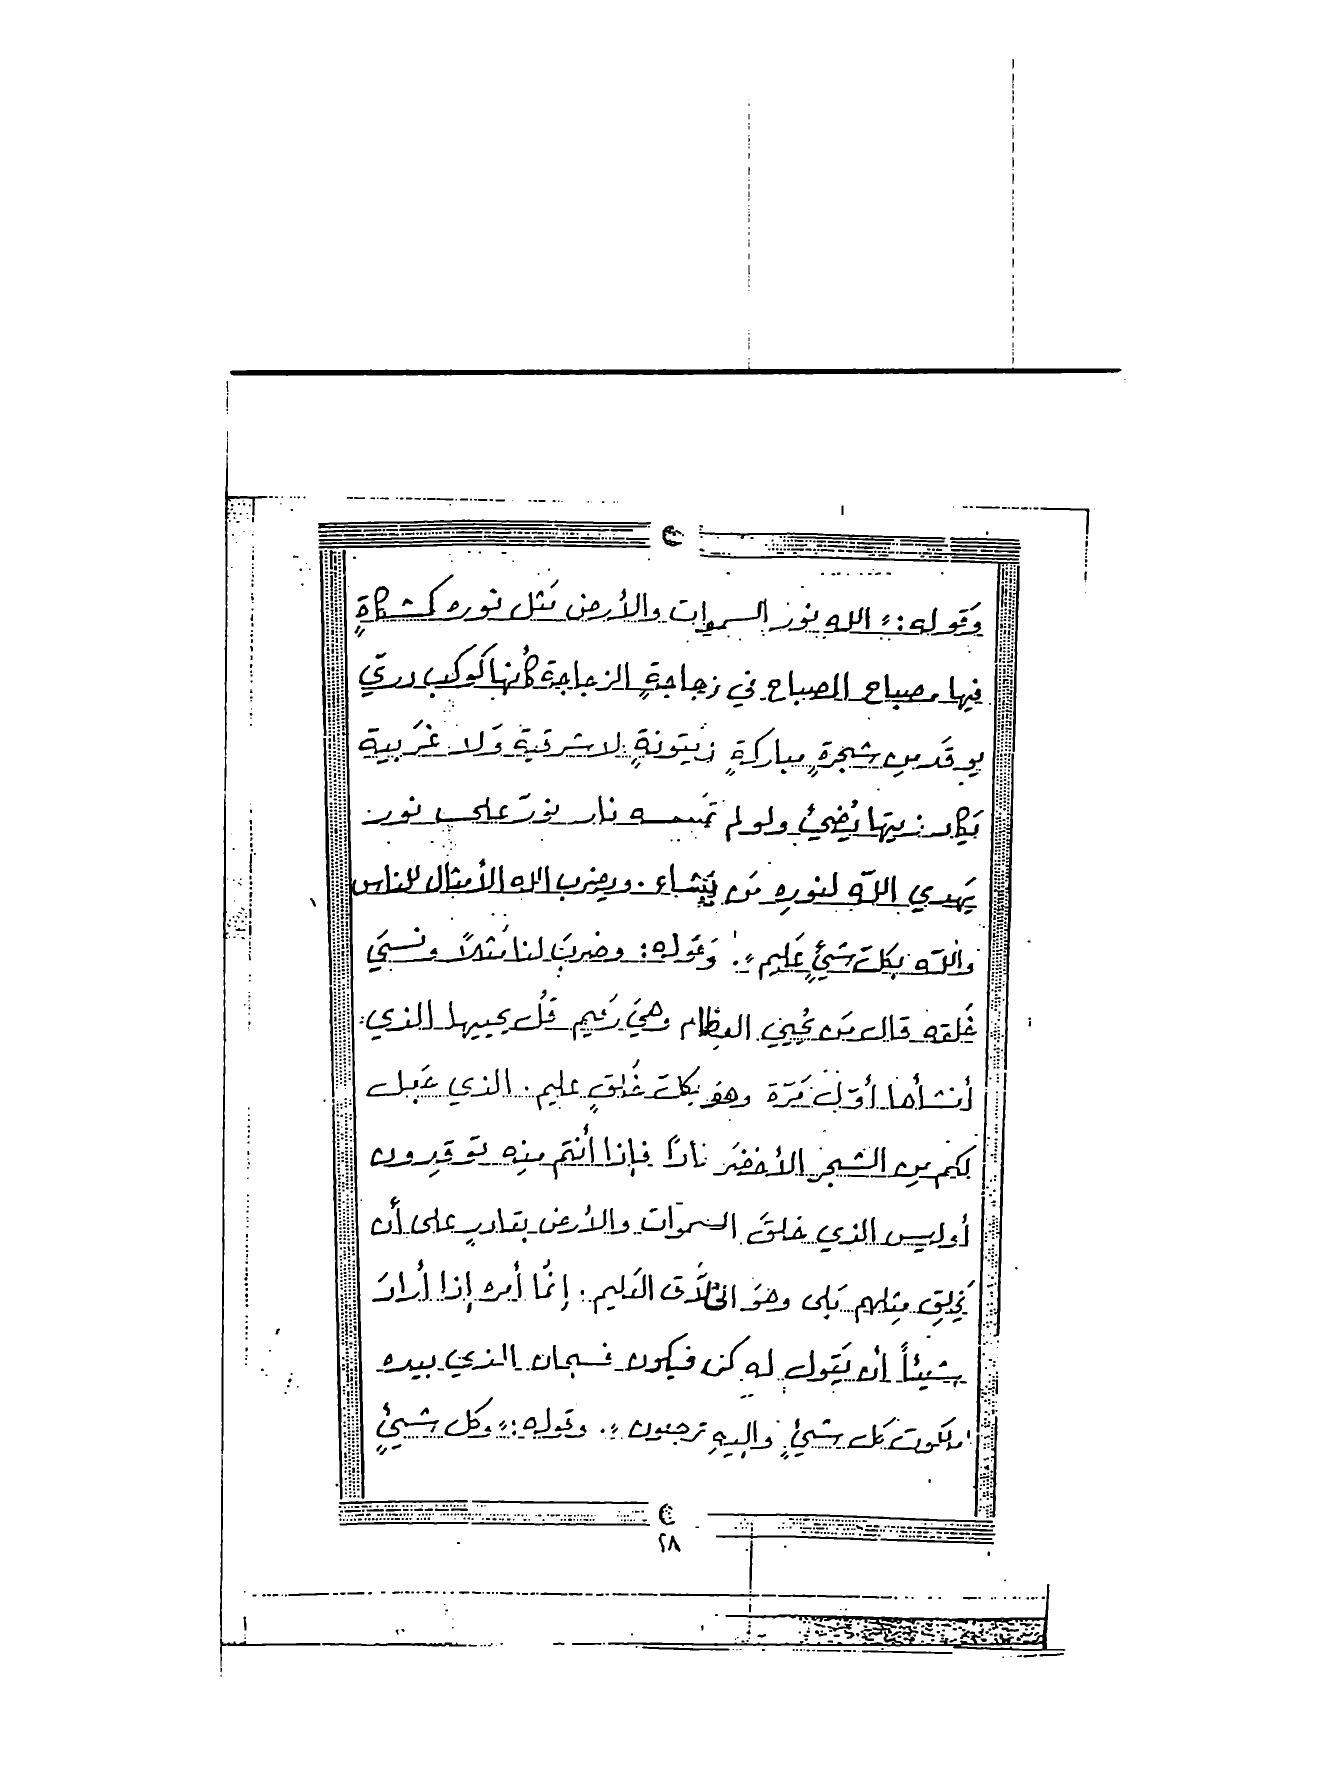 وَقوله: « الله نور السموات والأرض مَثل نوره كمشكاةٍ
فيها مصباح المصباح في زجاجةٍ الزجاجة كأنها كَوكب دريّ
يوقَد من شجرةٍ مباركةٍ زيتونةٍ لا شرقية وَلا غَربية
يَكاد زيتها يُضيئ ولو لم تمَسسه نار نورٌ على نور
يَهدي اللّه لنورِه مَن يَشاء. ويضرب الله الأمثال للناس
والله بكلّ شَيئٍ عَليم ». وَقوله: وضربَ لنا مَثلاً ونسيَ
خَلقه قال مَن يُحيي العِظام وهيَ رَميم قُل يحييها الذي
أنشأها أوّلَ مَرّة وهوَ بكلّ خَلقٍ عليم. الذي جَعل
لكم مِن الشجر الأخضَر نارًا فإذا أنتم مِنه توقِدون
أوليس الذي خلقَ السموّات والأرض بقادرٍ على أن
يَخلِق مِثلهم بَلى وهوَ الخَلاَّق العَليم. إنمُا أمره إذا أرادَ
شيئاً أن يَقول له كن فيكون فسبحان الذي بيده
ملكوت كل شيئٍ وإليهِ ترجعون ». وقوله: « وكل شيئٍ
٢٨